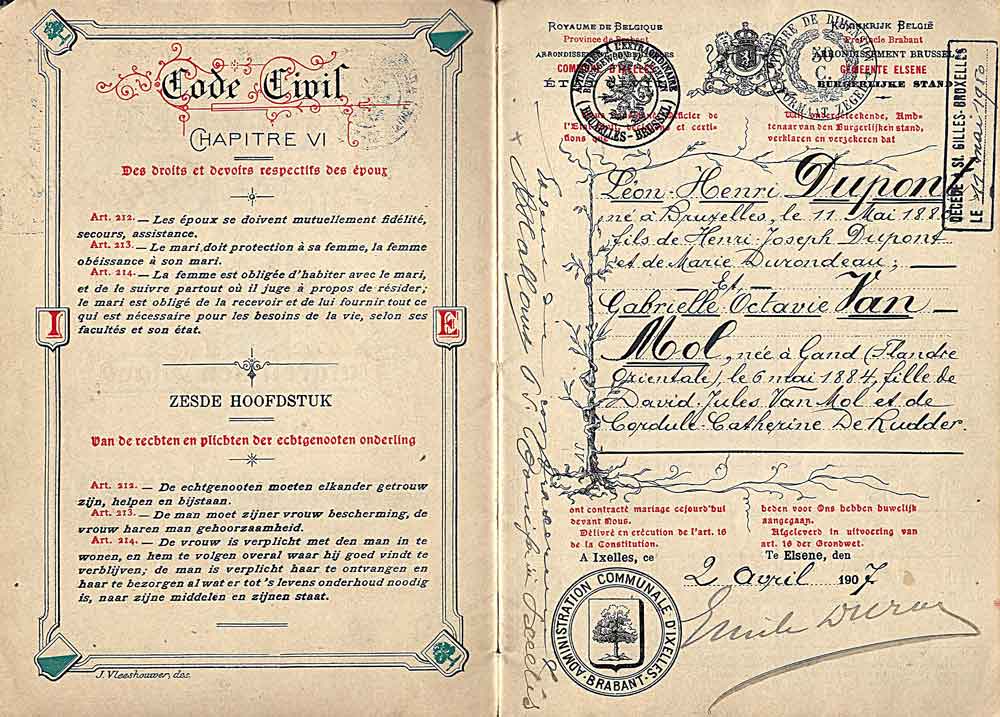 Code Civil
CHAPITRE VI
Des droits et devoirs respectifs des époux
Art. 212. — Les époux se doivent mutuellement fidélité,
secours, assistance.
Art. 213. — Le mari doit protection à sa femme, la femme
obéissance à son mari.
Art. 214. — La femme est obligée d'habiter avec le mari,
et de le suivre partout où il juge à propos de résider;
le mari est obligé de la recevoir et de lui fournir tout ce
qui est nécessaire pour les besoins de la vie, selon ses
facultés et son état.
I
E
ZESDE HOOFDSTUK
Van de rechten en plichten der echtgenooten onderling
Art. 212. — De echtgenooten moeten elkander getrouw
zijn, helpen en bijstaan.
Art. 213. — De man moet zijner vrouw bescherming, de
vrouw haren man gehoorzaamheid.
Art. 214. — De vrouw is verplicht met den man in te
wonen, en hem te volgen overal waar hij goed vindt te
verblijven; de man is verplicht haar te ontvangen en
haar te bezorgen al wat er tot 's levens onderhoud noodig
is, naar zijne middelen en zijnen staat.
J. Vleeshouwer, des.
ROYAUME DE BELGIQUE
Province de Brabant
ARRONDISSEMENT
COMMUNE D'IXELLES
KONINKRIJK BELGIË
Provincie Brabant
ARRONDISSEMENT BRUSSEL
GEMEENTE ELSENE
BURGERLIJKE STAND
BRUXELLES-BRUSSEL
50
C.
DÉCÉDÉ A ST. GILLES-BRUXELLES
LE
mai 1910
officier de
certi-
fions que
Wij ondergeteekende, Amb-
tenaar van den Burgerlijken stand,
verklaren en verzekeren dat
Léon-Henri Dupont
né à Bruxelles, le 11 Mai
fils de Henri-Joseph Dupont
et de Marie Durondeau; —
Et
Gabrielle-Octavie Van —
Mol, née à Gand (Flandre
Orientale), le 6 mai 1884, fille de
David-Jules Van Mol et de
Cordule-Catherine De Rudder.
ont contracté mariage cejourd'hui
devant Nous.
Délivré en exécution de l'art. 16
de la Constitution.
A Ixelles, ce
beden voor Ons hebben huwelijk
aangegaan.
Afgeleverd in uitvoering van
art. 16 der Grondwet.
Te Elsene, den
2 avril 1907
Emile Duray
ADMINISTRATION COMMUNALE D'IXELLES
BRABANT